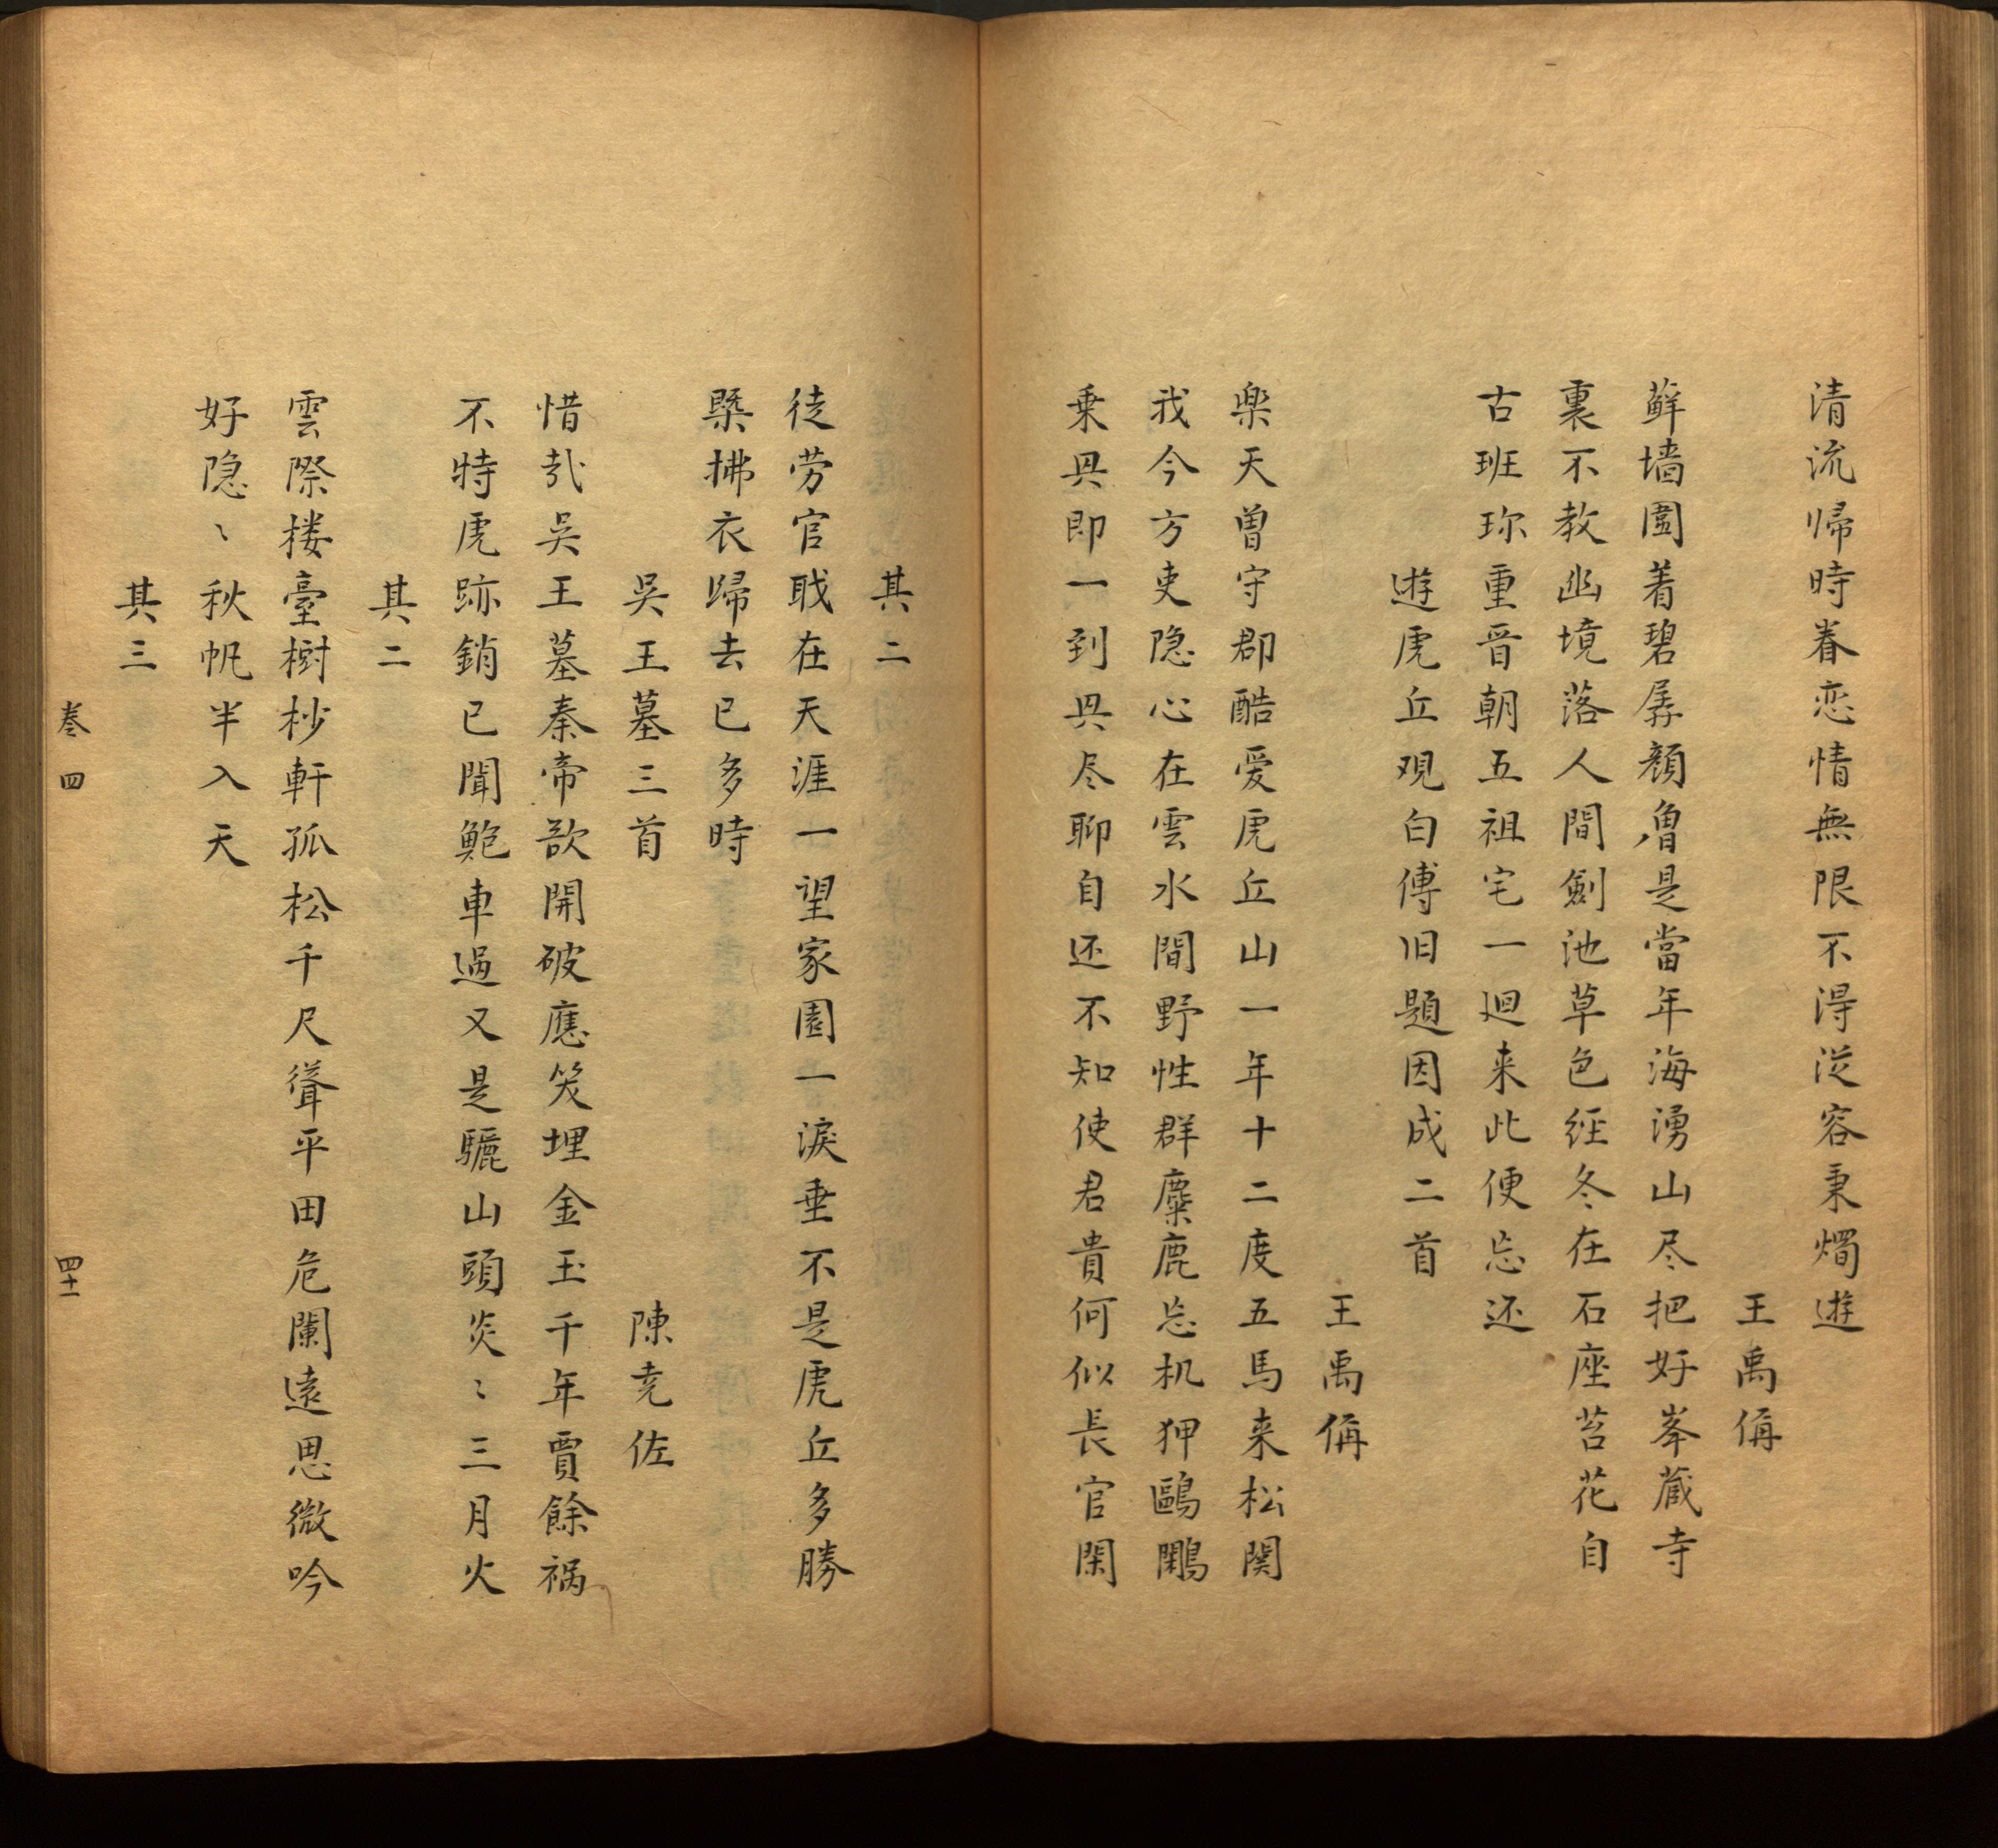 清流帰時眷恋情無限不得従容秉燭遊
王禹偁
蘚墙圍着碧孱顏曾是當年海湧山尽把好峯蔵寺
裏不教幽境落人間劍池草色経冬在石座苔花自
古班珎重晋朝五祖宅一廻来此便忘还
遊虎丘覌白傅旧題因成二首
王禹偁
楽天曽守郡酷爱虎丘山一年十二度五馬来松関
我今方吏隐心在雲水間野性群麋鹿忘机狎鷗鷴
乗㒷即一到㒷尽聊自还不知使君貴何似長官閑
其二
徒劳官戝在天涯一望家園一淚垂不是虎丘多勝
槩拂衣歸去已多時
吳王墓三首
陳尭佐
惜㢤吳王墓秦帝欲開破應笑埋金玉千年賈餘祸
不特虎跡銷已聞鮑車過又是驪山頭炎〻三月火
其二
雲際楼臺樹杪軒孤松千尺聳平田危闌遠思微吟
好隐〻秋帆半入天
其三
卷四
四十一